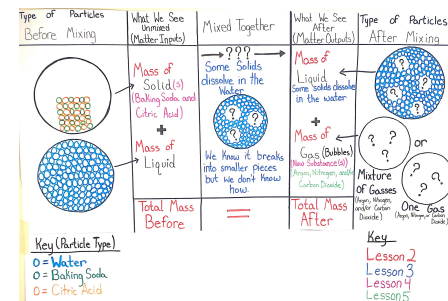 Type of Particles
Before Mixing
What We See
Unmixed
(Matter Inputs)
Mixed Together
What We See
After
(Matter Outputs)
Type of Particles
After Mixing
Mass of
Solid(s)
(Baking Soda and
Citric Acid)
+
Mass of
Liquid
Total Mass
Before
→ ??? →
Some Solids
dissolve in the
Water
? ? ?
We know it breaks
into smaller pieces
but we don't know
how.
=
Mass of
Liquid
Some solids dissolve
in the water
+
Mass of
Gas (Bubbles)
New Substance(s)
(Argon, Nitrogen, and/or
Carbon Dioxide)
Total Mass
After
? ? ? ?
? ? ?
or
? ? ?
Mixture
of Gasses
(Argon, Nitrogen,
and/or Carbon
Dioxide)
One Gas
(Argon, Nitrogen, or Carbon
Dioxide)
Key (Particle Type)
O = Water
O = Baking Soda
O = Citric Acid
Key
Lesson 2
Lesson 3
Lesson 4
Lesson 5